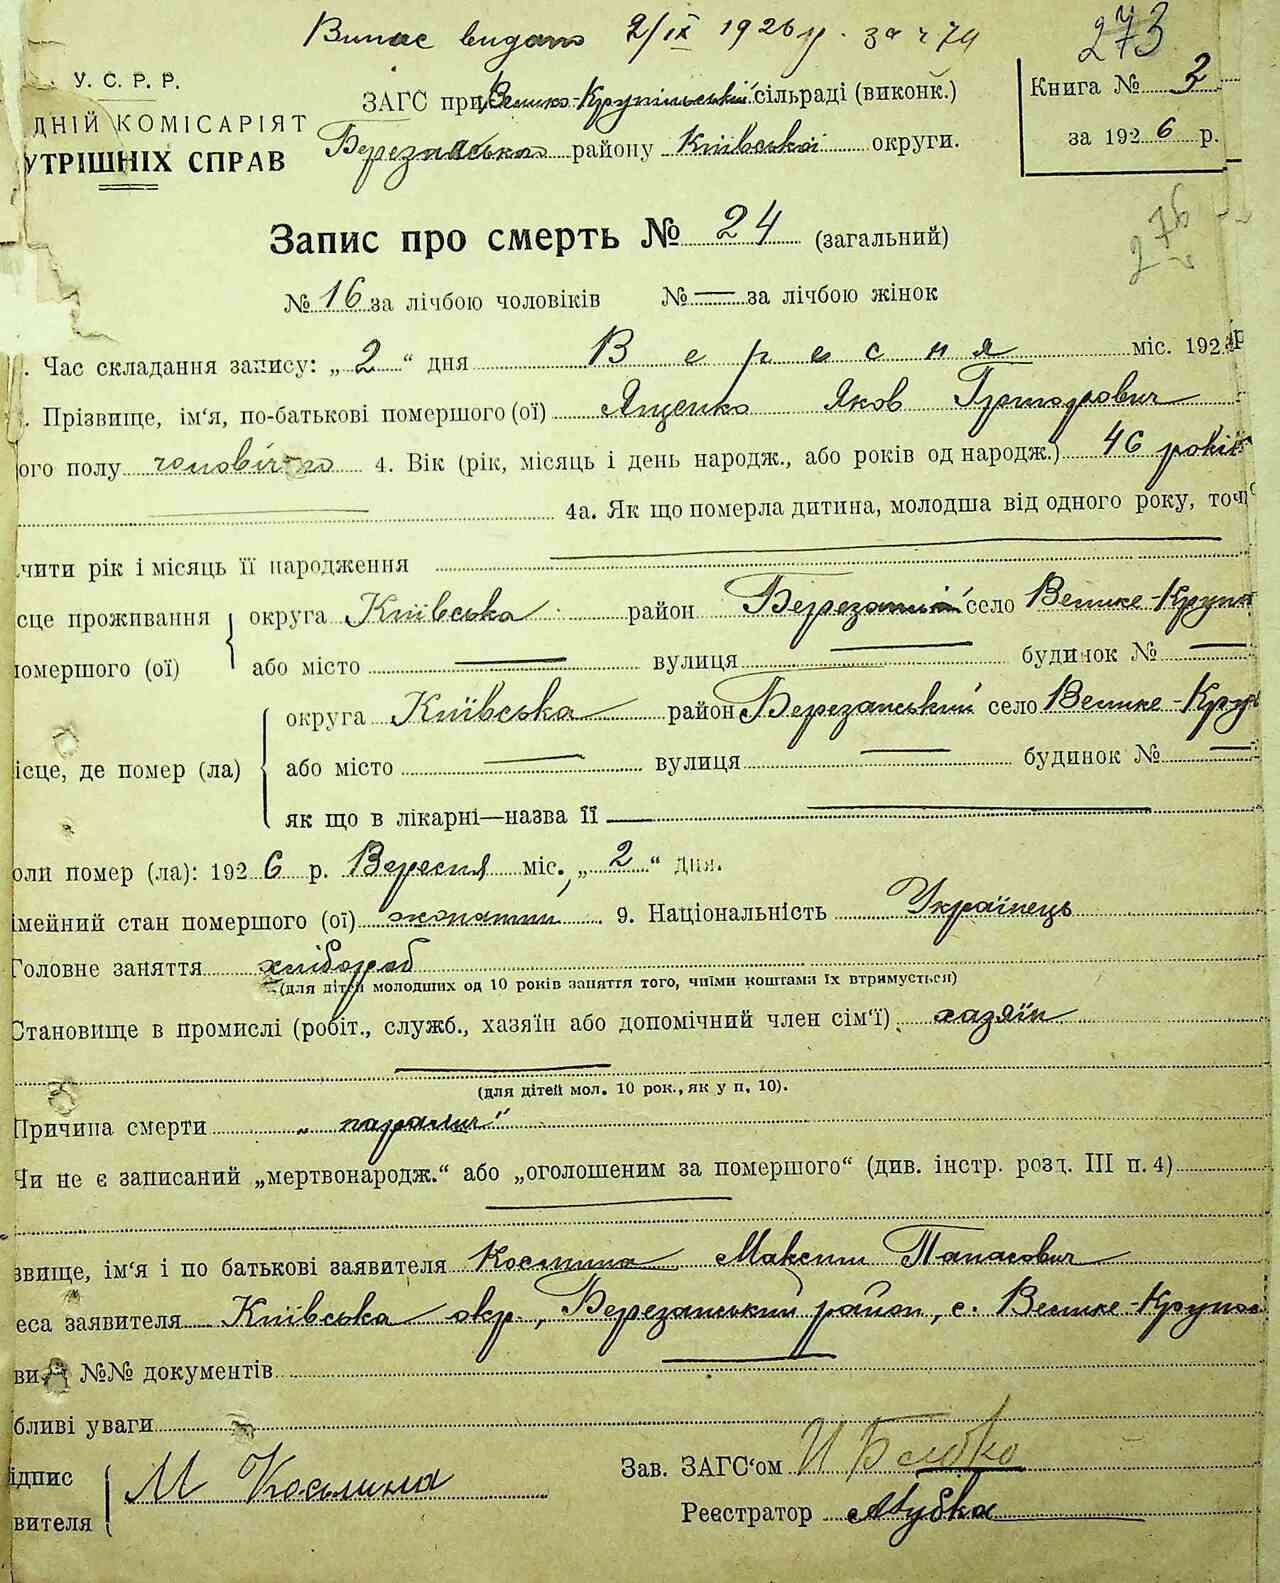 Випис видано 2/IX 1926 р. за ч 79
273
У. С. Р. Р.
ДНІЙ КОМІСАРІЯТ
УТРІШНІХ СПРАВ
ЗАГС при Велико-Крупільській сільраді (виконк.)
Березанського району Київської округи.
Книга № 3
за 1926 р.
276
Запис про смерть № 24 (загальний)
№ 16 за лічбою чоловіків № — за лічбою жінок
. Час складання запису: „2“ дня Вересня міс. 192 р
. Прізвище, ім‘я, по-батькові помершого (ої) Яценко Яков Григорович
ого полу чоловічого 4. Вік (рік, місяць і день народж., або років од народж.) 46 років
4а. Як що померла дитина, молодша від одного року, точ
чити рік і місяць її народження
сце проживання округа Київська район Березанський село Велике-Крупол
помершого (ої) або місто — вулиця — будинок № —
округа Київська район Березанський село Велике-Круп
ісце, де помер (ла) або місто — вулиця — будинок № —
як що в лікарні—назва її —
оли помер (ла): 1926 р. Вересня міс., „2“ дня.
імейний стан помершого (ої) жонатий 9. Національність Українець
Головне заняття хлібороб
(для дітей молодших од 10 років заняття того, чиїми коштами їх втримується)
Становище в промислі (робіт., служб., хазяїн або допомічний член сім‘ї) хазяїн
(для дітей мол. 10 рок., як у п. 10).
Причина смерти „параліч“
Чи не є записаний „мертвонародж.“ або „оголошеним за помершого“ (див. інстр. розд. III п. 4)
звище, ім‘я і по батькові заявителя Косьмина Максим Панасович
еса заявителя Київська окр., Березанський район, с. Велике-Крупол
ви №№ документів
бливі уваги
ідпис
вителя
М Косьмина
Зав. ЗАГС‘ом
Реєстратор